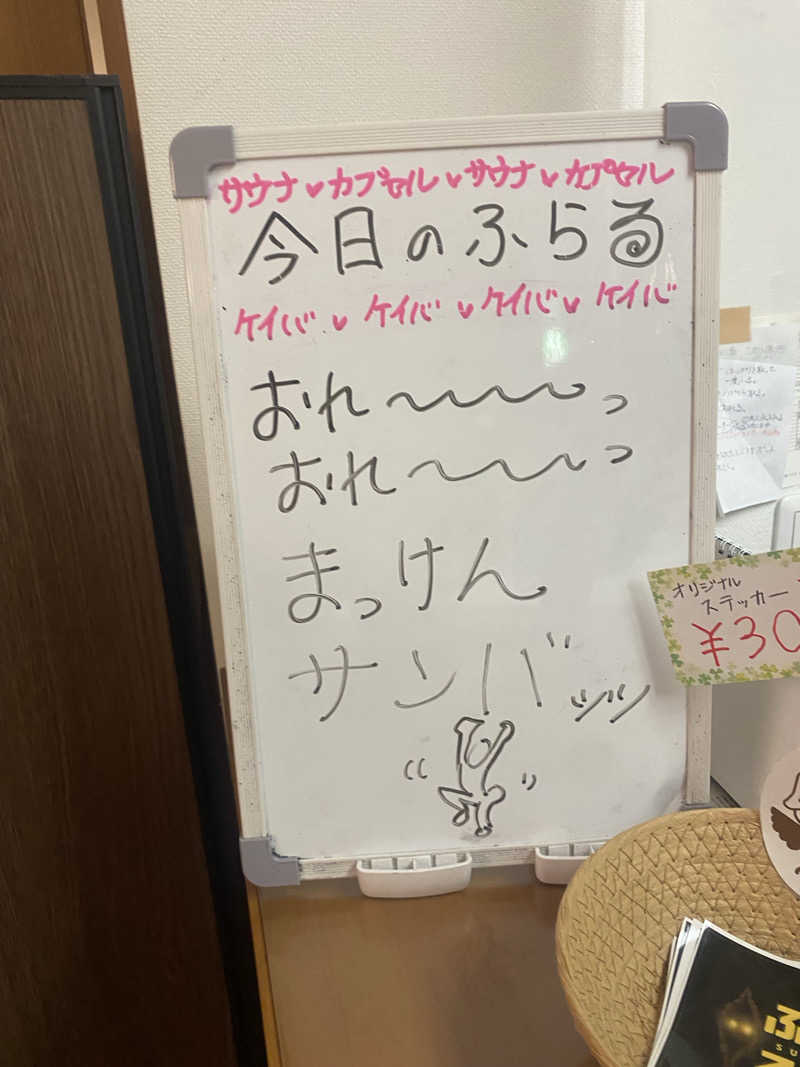 サウナ♥カプセル♥サウナ♥カプセル
今日のふらる
ケイバ♥ケイバ♥ケイバ♥ケイバ
おれ〜〜〜っ
おれ〜〜〜っ
まっけん
サンバッツ
オリジナル
ステッカー
¥30